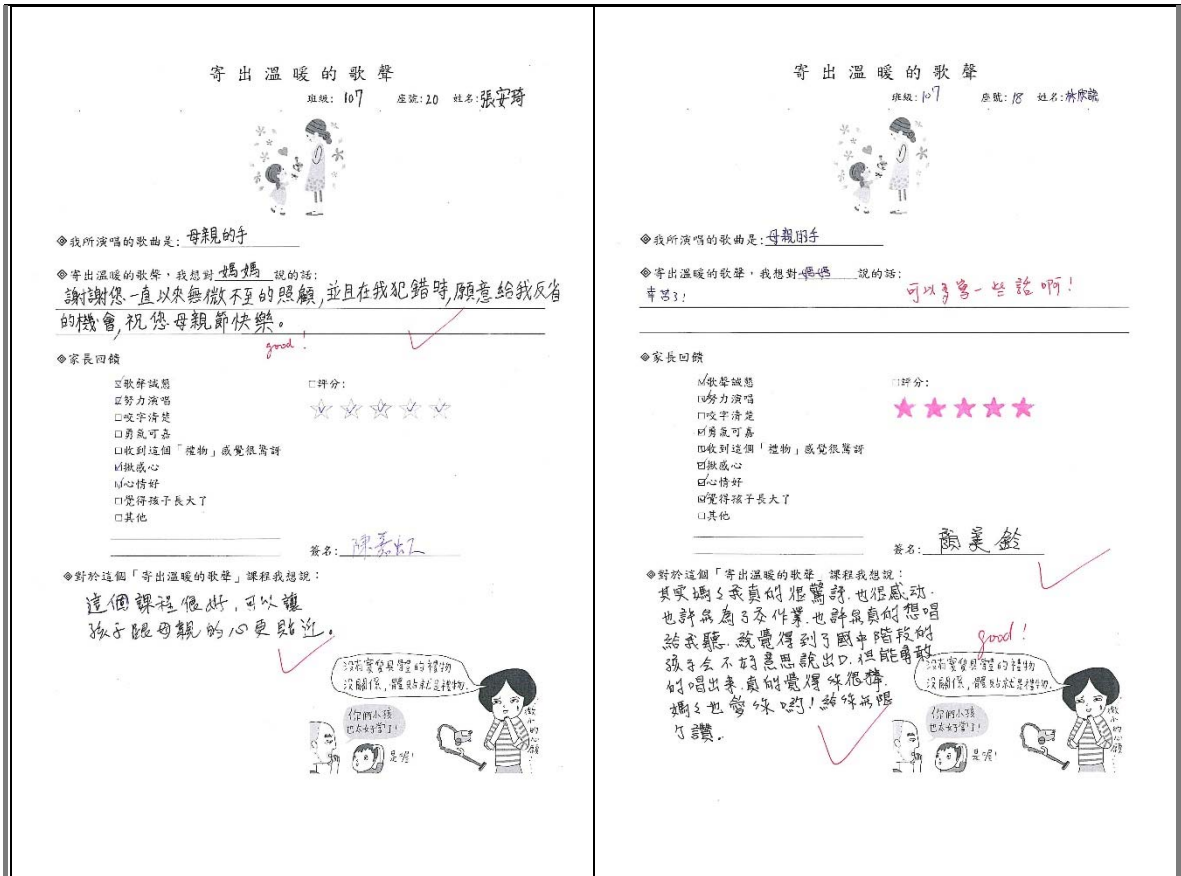 寄出溫暖的歌聲
班級: 107 座號: 20 姓名: 張安琦
◈我所演唱的歌曲是: 母親的手
◈寄出溫暖的歌聲,我想對 媽媽 說的話:
謝謝您一直以來無微不至的照顧,並且在我犯錯時,願意給我反省
的機會,祝您母親節快樂。
good!
◈家長回饋
☑歌聲誠懇 □評分:
☑努力演唱
□咬字清楚
□勇氣可嘉
□收到這個「禮物」感覺很驚訝
☑揪感心
☑心情好
□覺得孩子長大了
□其他
簽名: 陳嘉虹
◈對於這個「寄出溫暖的歌聲」課程我想說:
這個課程很好,可以讓
孩子跟母親的心更貼近。
沒有實質具體的禮物
沒關係,體貼就是禮物.
你們小孩
也太好當了!
是喔!
微小的心願
寄出溫暖的歌聲
班級: 107 座號: 18 姓名: 林
◈我所演唱的歌曲是: 母親的手
◈寄出溫暖的歌聲,我想對 媽媽 說的話:
辛苦了! 可以多寫一些話啊!
◈家長回饋
☑歌聲誠懇 □評分:
☑努力演唱
□咬字清楚
☑勇氣可嘉
☑收到這個「禮物」感覺很驚訝
☑揪感心
☑心情好
☑覺得孩子長大了
□其他
簽名: 顏美鈴
◈對於這個「寄出溫暖的歌聲」課程我想說:
其實媽々我真的很驚訝.也很感动.
也許是為了交作業.也許是真的想唱
給我聽.總覺得到了國中階段的
孩子会不好意思說出口.但能勇敢
的唱出來.真的覺得妳很棒.
媽々也愛妳喲!給妳無限
个讚.
good!
沒有實質具體的禮物
沒關係,體貼就是禮物.
你們小孩
也太好當了!
是喔!
微小的心願